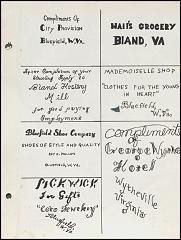 Compliments Of
City Provision
Bluefield, W.Va.
HALL'S GROCERY
BLAND, VA
After Completion of your
Schooling Apply to
Bland Hosiery
Mill
for good paying
Employment
MADEMOISELLE SHOP
"CLOTHES FOR THE YOUNG
IN HEART"
Bluefield,
W. Va.
Bluefield Shoe Company
SHOES OF STYLE AND QUALITY
BLUEFIELD, W.VA.
Compliments
of
George Wythe
Hotel
Wytheville
Virginia
PICKWICK
For Gifts
"Coro Jewelry"
Bluefield
W. Va.